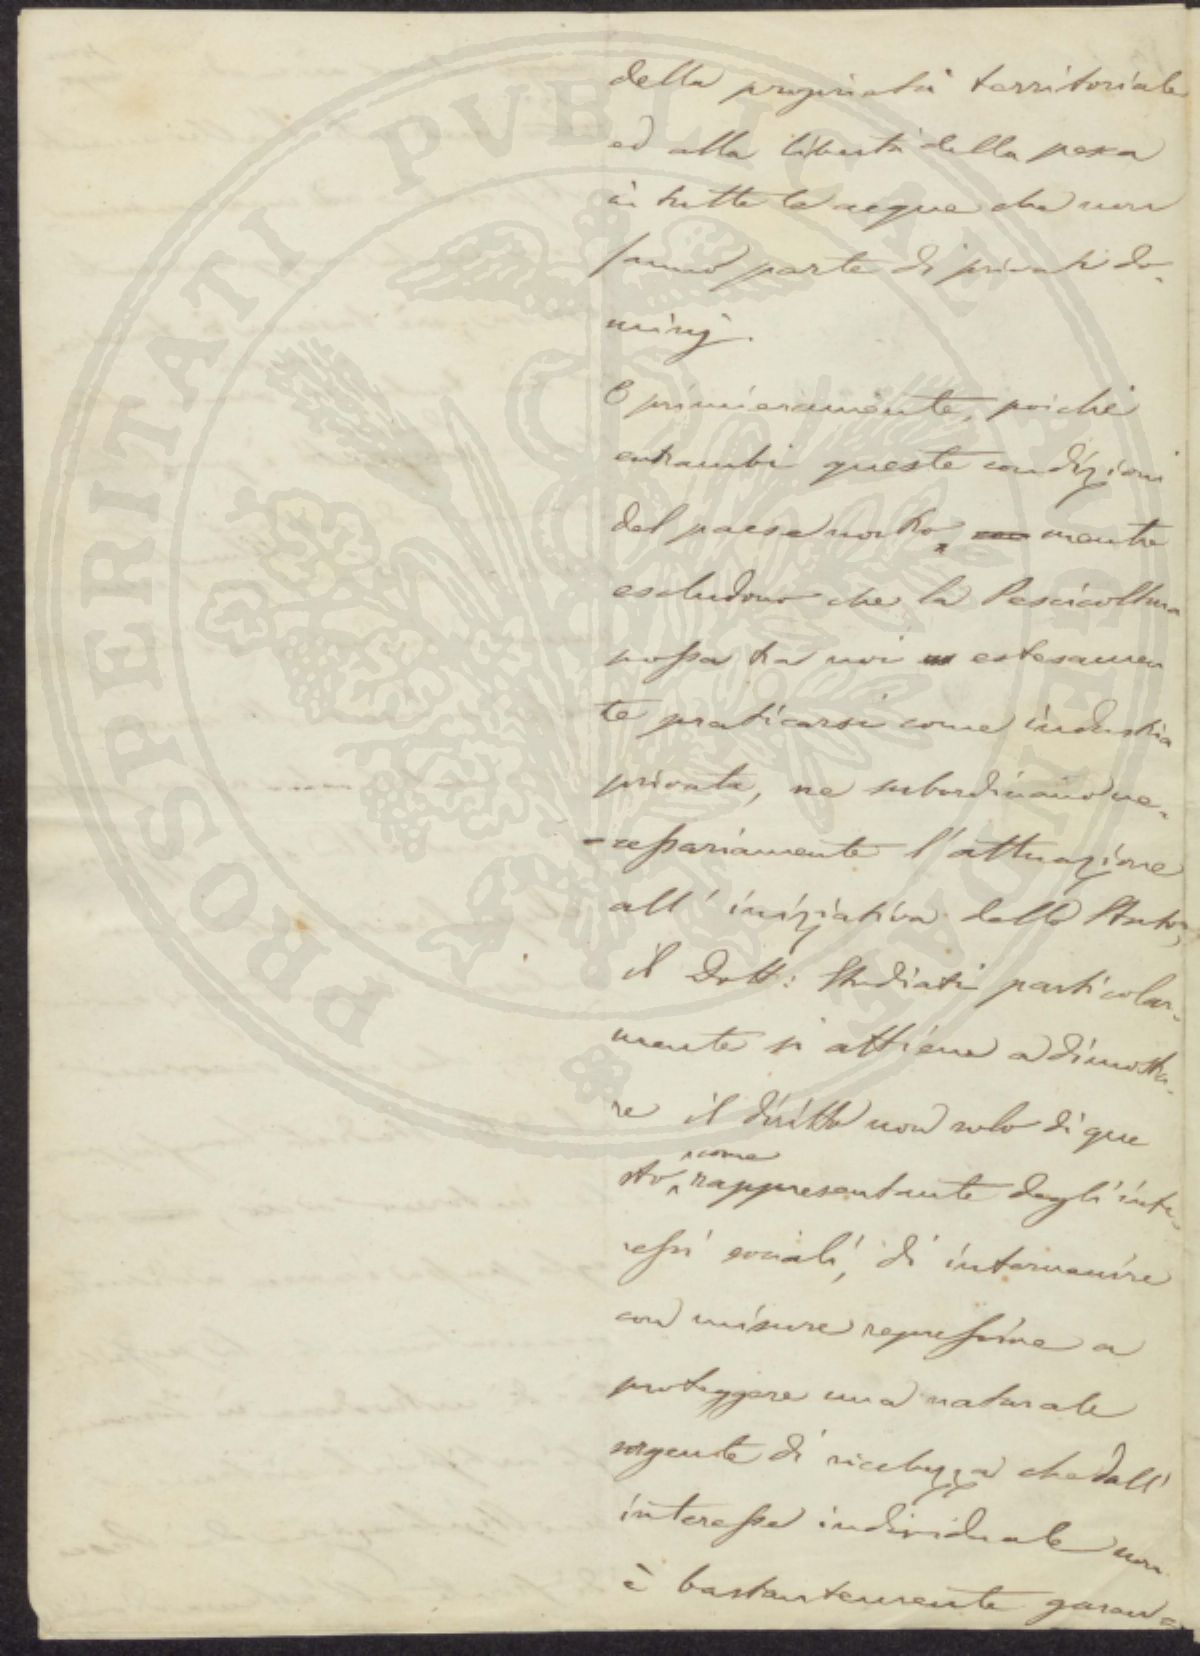 della proprietà territoriale
ed alla libertà della pesca
in tutte le acque che non
fanno parte di privati do-
minj.
E primieramente, poichè
entrambi queste condizioni
del paese nostro, mentre
escludono che la Pescicoltura
possa tra noi estesamen
te praticarsi come industria
privata, ne subordinano ne-
-cessariamente l'attuazione
all'iniziativa dello Stato,
il Dott: Studiati particolar-
mente si attiene a dimostra-
re il diritto non solo di que
sto, come rappresentante degli inte-
ressi sociali, di intervenire
con misure repressive a
proteggere una naturale
sorgente di ricchezza che dall'
interesse individuale non
è bastantemente garan
PROSPERITATI PVBLICAE AVGENDAE